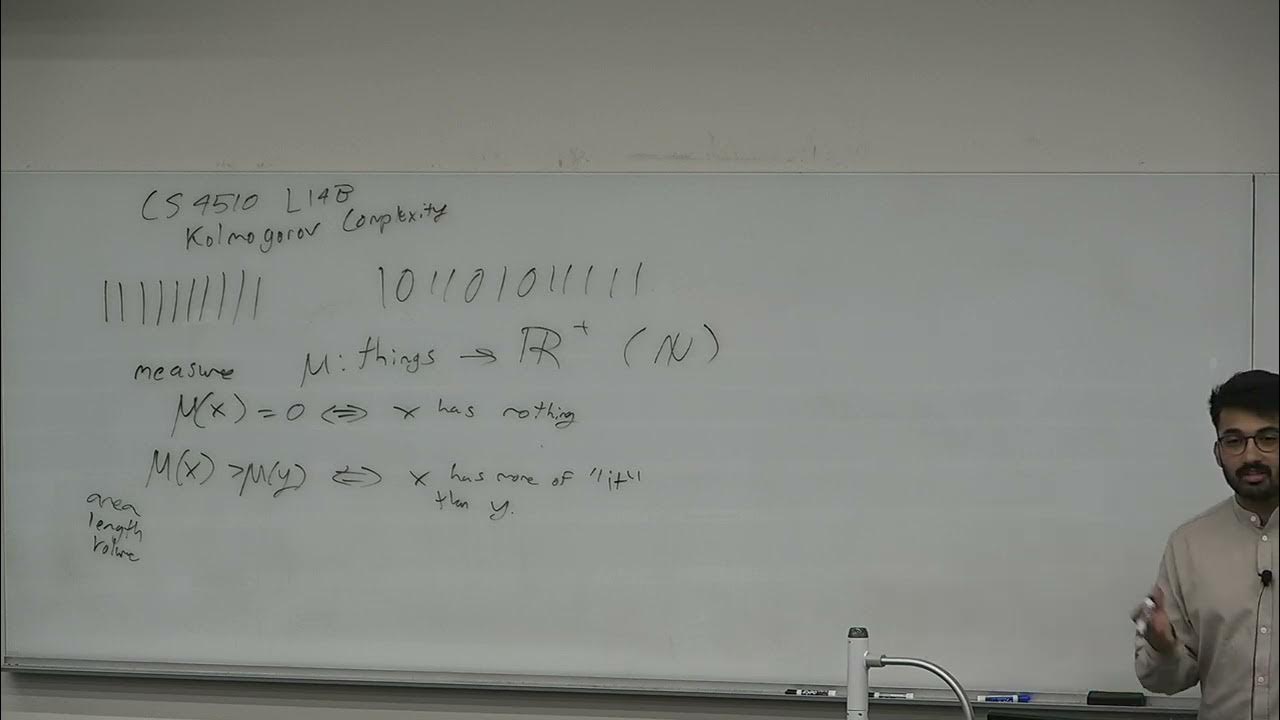 CS 4510 L14B
Kolmogorov Complexity
1111111111 101101011111
measure μ: things → ℝ⁺ (ℕ)
μ(x) = 0 ⇔ x has nothing
μ(x) > μ(y) ⇔ x has more of "it"
than y.
area
length
volume